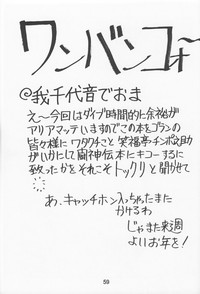 ワンバンコォ〜
@我千代音でおま
え〜今回はダイブ時間的に余裕が
アリアマッテいますのでこの本をゴランの
皆々様にワタクチこと笑福亭チンポ之助
がいかにして闘神伝本にキョーするに
致ったかをそれこそトックリと聞かせて
あ、キャッチホン入っちゃたまた
かけるわ
じゃまた来週
よいお年を!
59